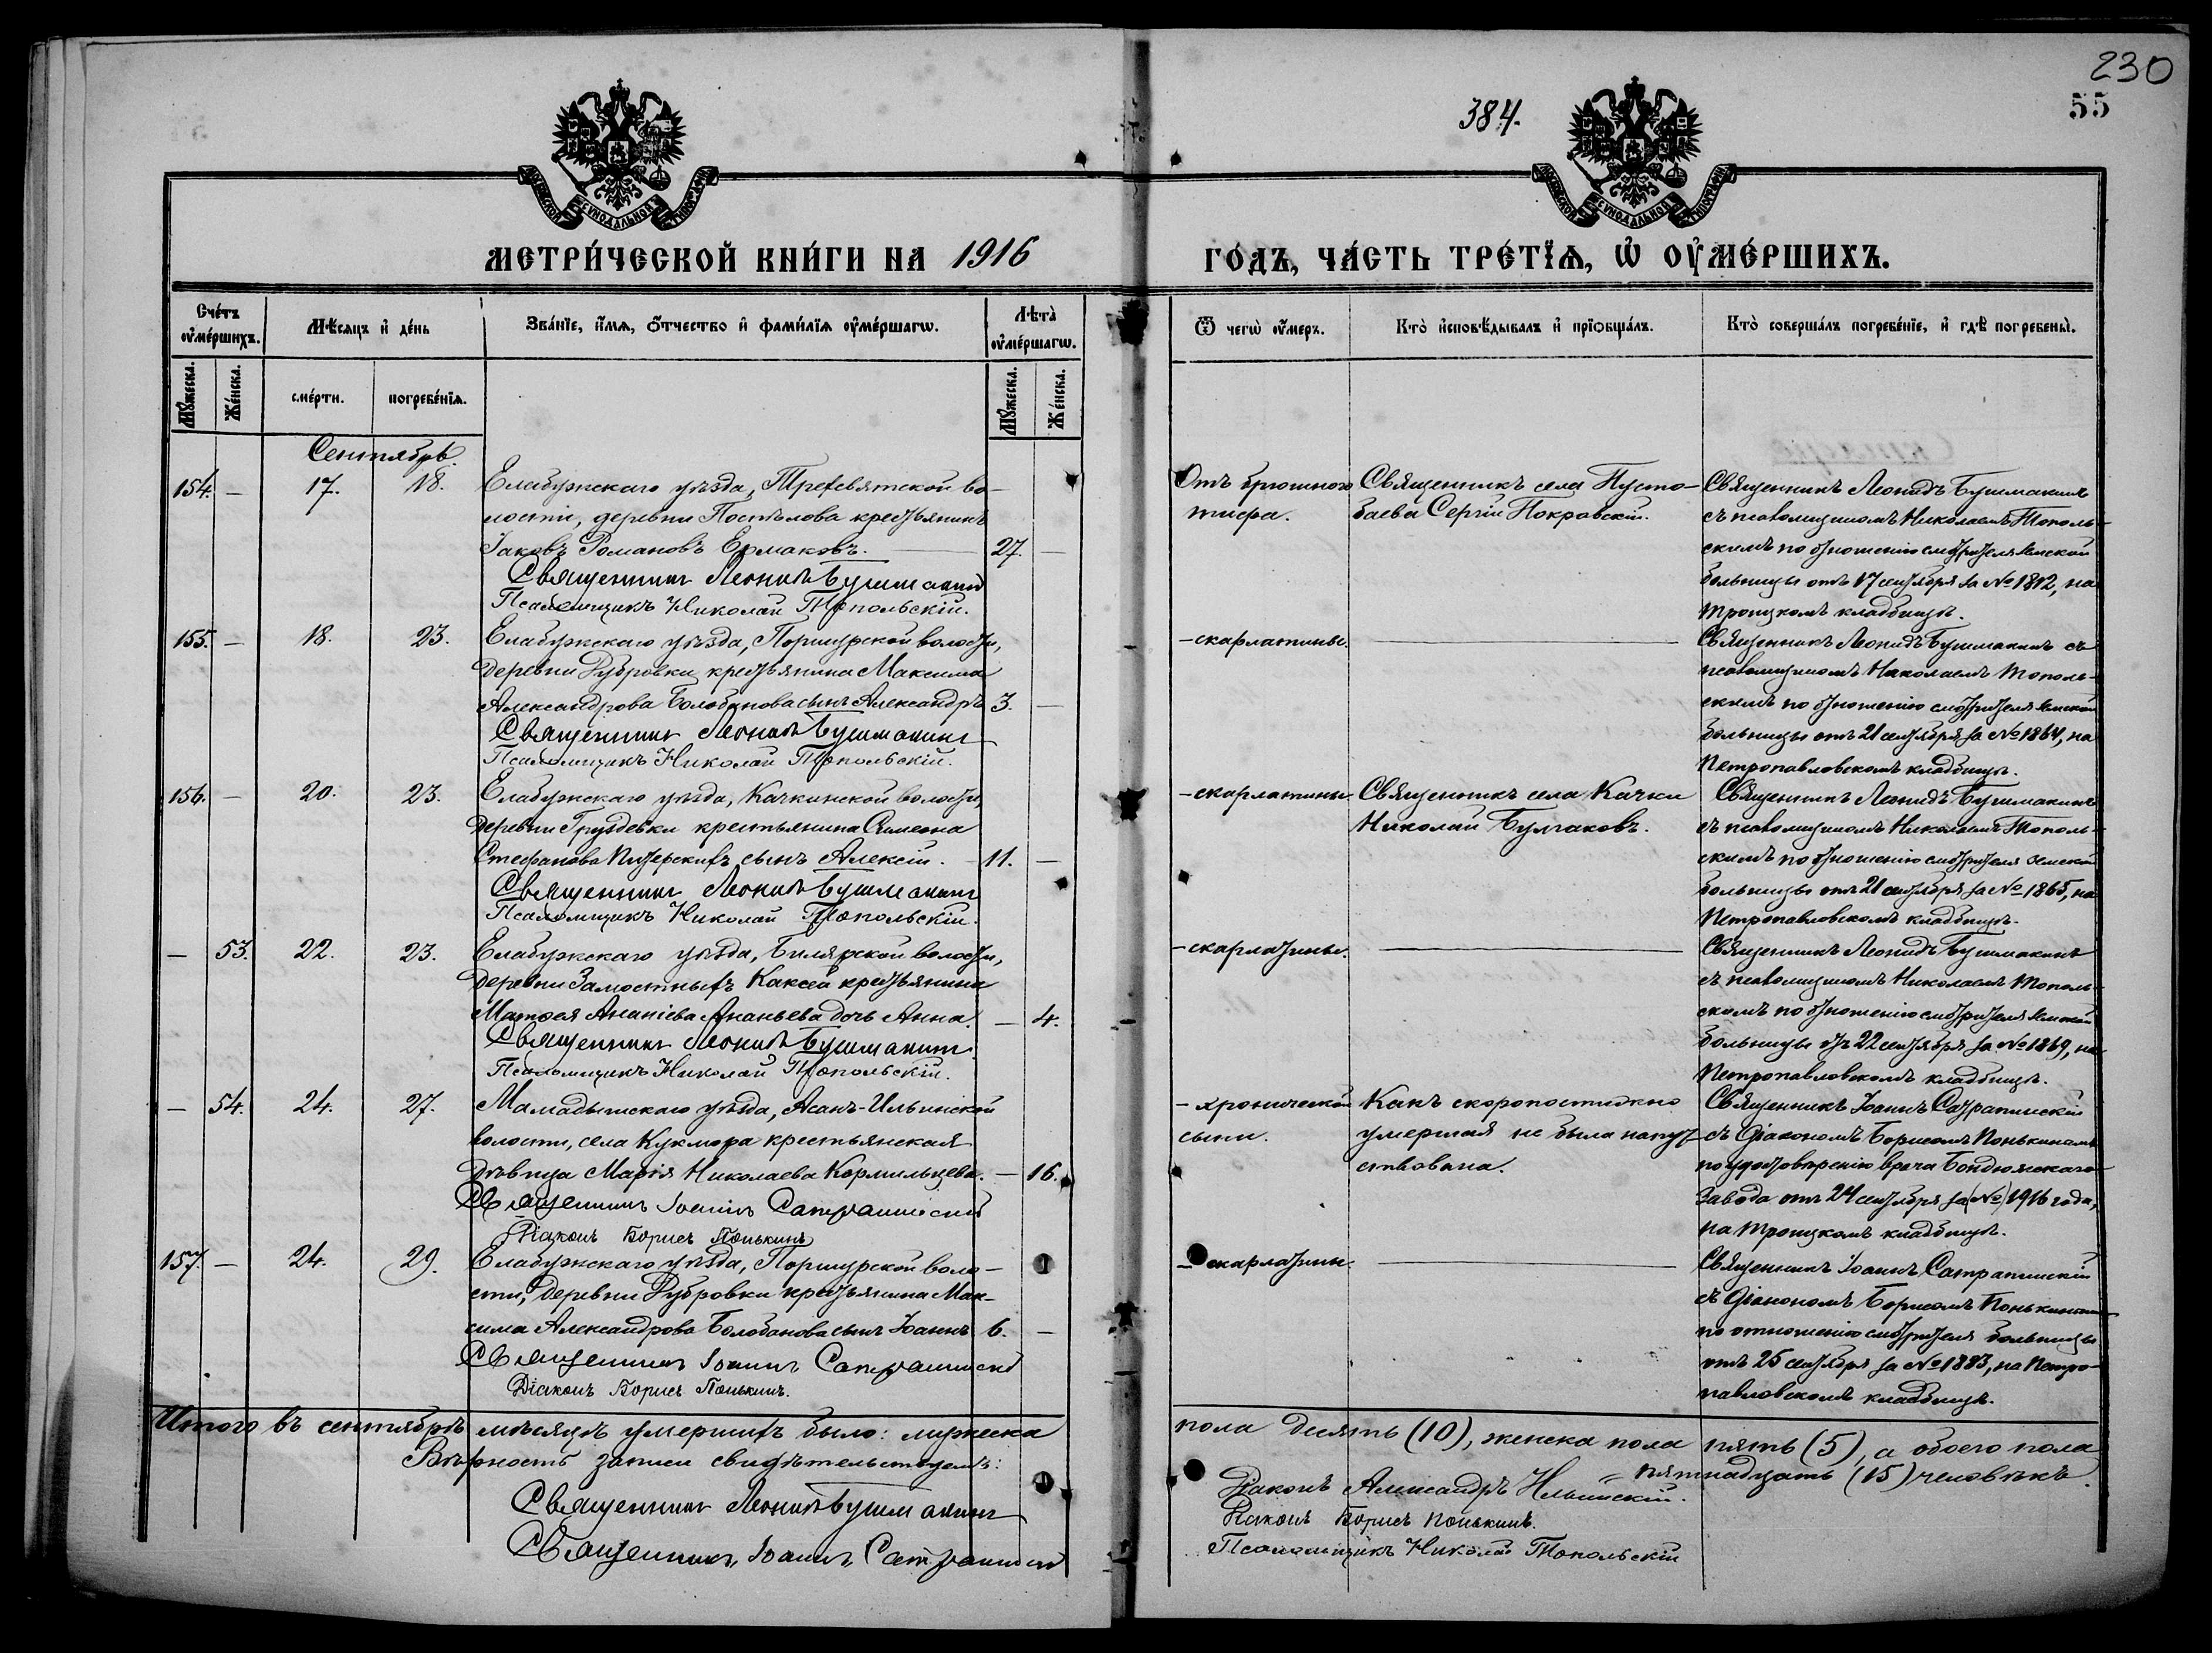 230
384.
55
МОСКОВСКОЙ СѴНОДАЛЬНОЙ ТИПОГРАФІИ
МОСКОВСКОЙ СѴНОДАЛЬНОЙ ТИПОГРАФІИ
МЕТРИ́ЧЕСКОЙ КНИ́ГИ НА 1916
ГО́ДЪ, ЧА́СТЬ ТРЕ́ТЇѦ, Ѡ҆ ОУ҆МЕ́РШИХЪ.
Сче́тъ оу҆ме́ршихъ.
Мѣ́сяцъ и҆ де́нь
Зва́нїе, и҆́мя, ѻ҆́тчество и҆ фами́лїя оу҆ме́ршагѡ.
Лѣта̀ оу҆ме́ршагѡ.
Ѿ чегѡ̀ оу҆́меръ.
Кто̀ и҆сповѣ́дывалъ и҆ прїѡбща́лъ.
Кто̀ соверша́лъ погребе́нїе, и҆ гдѣ̀ погребены̀.
Мꙋ́жеска. Же́нска. сме́рти. погребе́нїя. Мꙋ́жеска. Же́нска.
Сентябрь.
154. — 17. 18. Елабужскаго уѣзда, Трехсвятской во-
лости, деревни Поспѣлова крестьянинъ
Іаковъ Романовъ Ермаковъ. — 27. —
Священникъ Леонидъ Бушмакинъ
Псаломщикъ Николай Топольскій.
Отъ брюшного
тифа.
Священникъ села Пусто-
баева Сергій Покровскій.
Священникъ Леонидъ Бушмакинъ
съ псаломщикомъ Николаемъ Тополь-
скимъ по отношенію смотрителя Земской
больницы отъ 17 сентября за № 1812, на
Троицкомъ кладбищѣ.
155. — 18. 23. Елабужскаго уѣзда, Поршурской волости,
деревни Дубровки крестьянина Максима
Александрова Болобанова сынъ Александръ 3. —
Священникъ Леонидъ Бушмакинъ
Псаломщикъ Николай Топольскій.
— скарлатины. —
Священникъ Леонидъ Бушмакинъ съ
псаломщикомъ Николаемъ Тополь-
скимъ по отношенію смотрителя Земской
больницы отъ 21 сентября за № 1864, на
Петропавловскомъ кладбищѣ.
156. — 20. 23. Елабужскаго уѣзда, Качкинской волости,
деревни Груздевки крестьянина Симеона
Стефанова Питерскихъ сынъ Алексій. — 11. —
Священникъ Леонидъ Бушмакинъ
Псаломщикъ Николай Топольскій.
— скарлатины
Священникъ села Качки
Николай Булгаковъ.
Священникъ Леонидъ Бушмакинъ
съ псаломщикомъ Николаемъ Тополь-
скимъ по отношенію смотрителя Земской
больницы отъ 21 сентября за № 1865, на
Петропавловскомъ кладбищѣ.
— 53. 22. 23. Елабужскаго уѣзда, Билярской волости,
деревни Замостныхъ Каксей крестьянина
Матѳея Ананіева Ананьева дочь Анна. — 4.
Священникъ Леонидъ Бушмакинъ
Псаломщикъ Николай Топольскій.
— скарлатины. —
Священникъ Леонидъ Бушмакинъ
съ псаломщикомъ Николаемъ Тополь-
скимъ по отношенію смотрителя Земской
больницы отъ 22 сентября за № 1869, на
Петропавловскомъ кладбищѣ.
— 54. 24. 27. Мамадышскаго уѣзда, Асанъ-Ильинской
волости, села Кукмора крестьянская
дѣвица Марія Николаева Кормильцева. — 16.
Священникъ Іоаннъ Сатрапинскій
Діаконъ Борисъ Понькинъ
— хронической
сыпи.
Какъ скоропостижно
умершая не была напут-
ствована.
Священникъ Іоаннъ Сатрапинскій
съ Діакономъ Борисомъ Понькинымъ
по удостовѣренію врача Бондюжскаго
Завода отъ 24 сентября за (№) 1916 года,
на Троицкомъ кладбищѣ.
157. — 24. 29. Елабужскаго уѣзда, Поршурской воло-
сти, деревни Дубровки крестьянина Мак-
сима Александрова Болобанова сынъ Іоаннъ 6. —
Священникъ Іоаннъ Сатрапинскій
Діаконъ Борисъ Понькинъ.
— скарлатины. —
Священникъ Іоаннъ Сатрапинскій
съ Діакономъ Борисомъ Понькинымъ
по отношенію смотрителя больницы
отъ 25 сентября за № 1883, на Петро-
павловскомъ кладбищѣ.
Итого въ сентябрѣ мѣсяцѣ умершихъ было: мужеска пола десять (10), женска пола пять (5), а обоего пола
пятнадцать (15) человѣкъ.
Вѣрность записи свидѣтельствуемъ:
Священникъ Леонидъ Бушмакинъ
Священникъ Іоаннъ Сатрапинскій
Діаконъ Александръ Ильинскій.
Діаконъ Борисъ Понькинъ.
Псаломщикъ Николай Топольскій